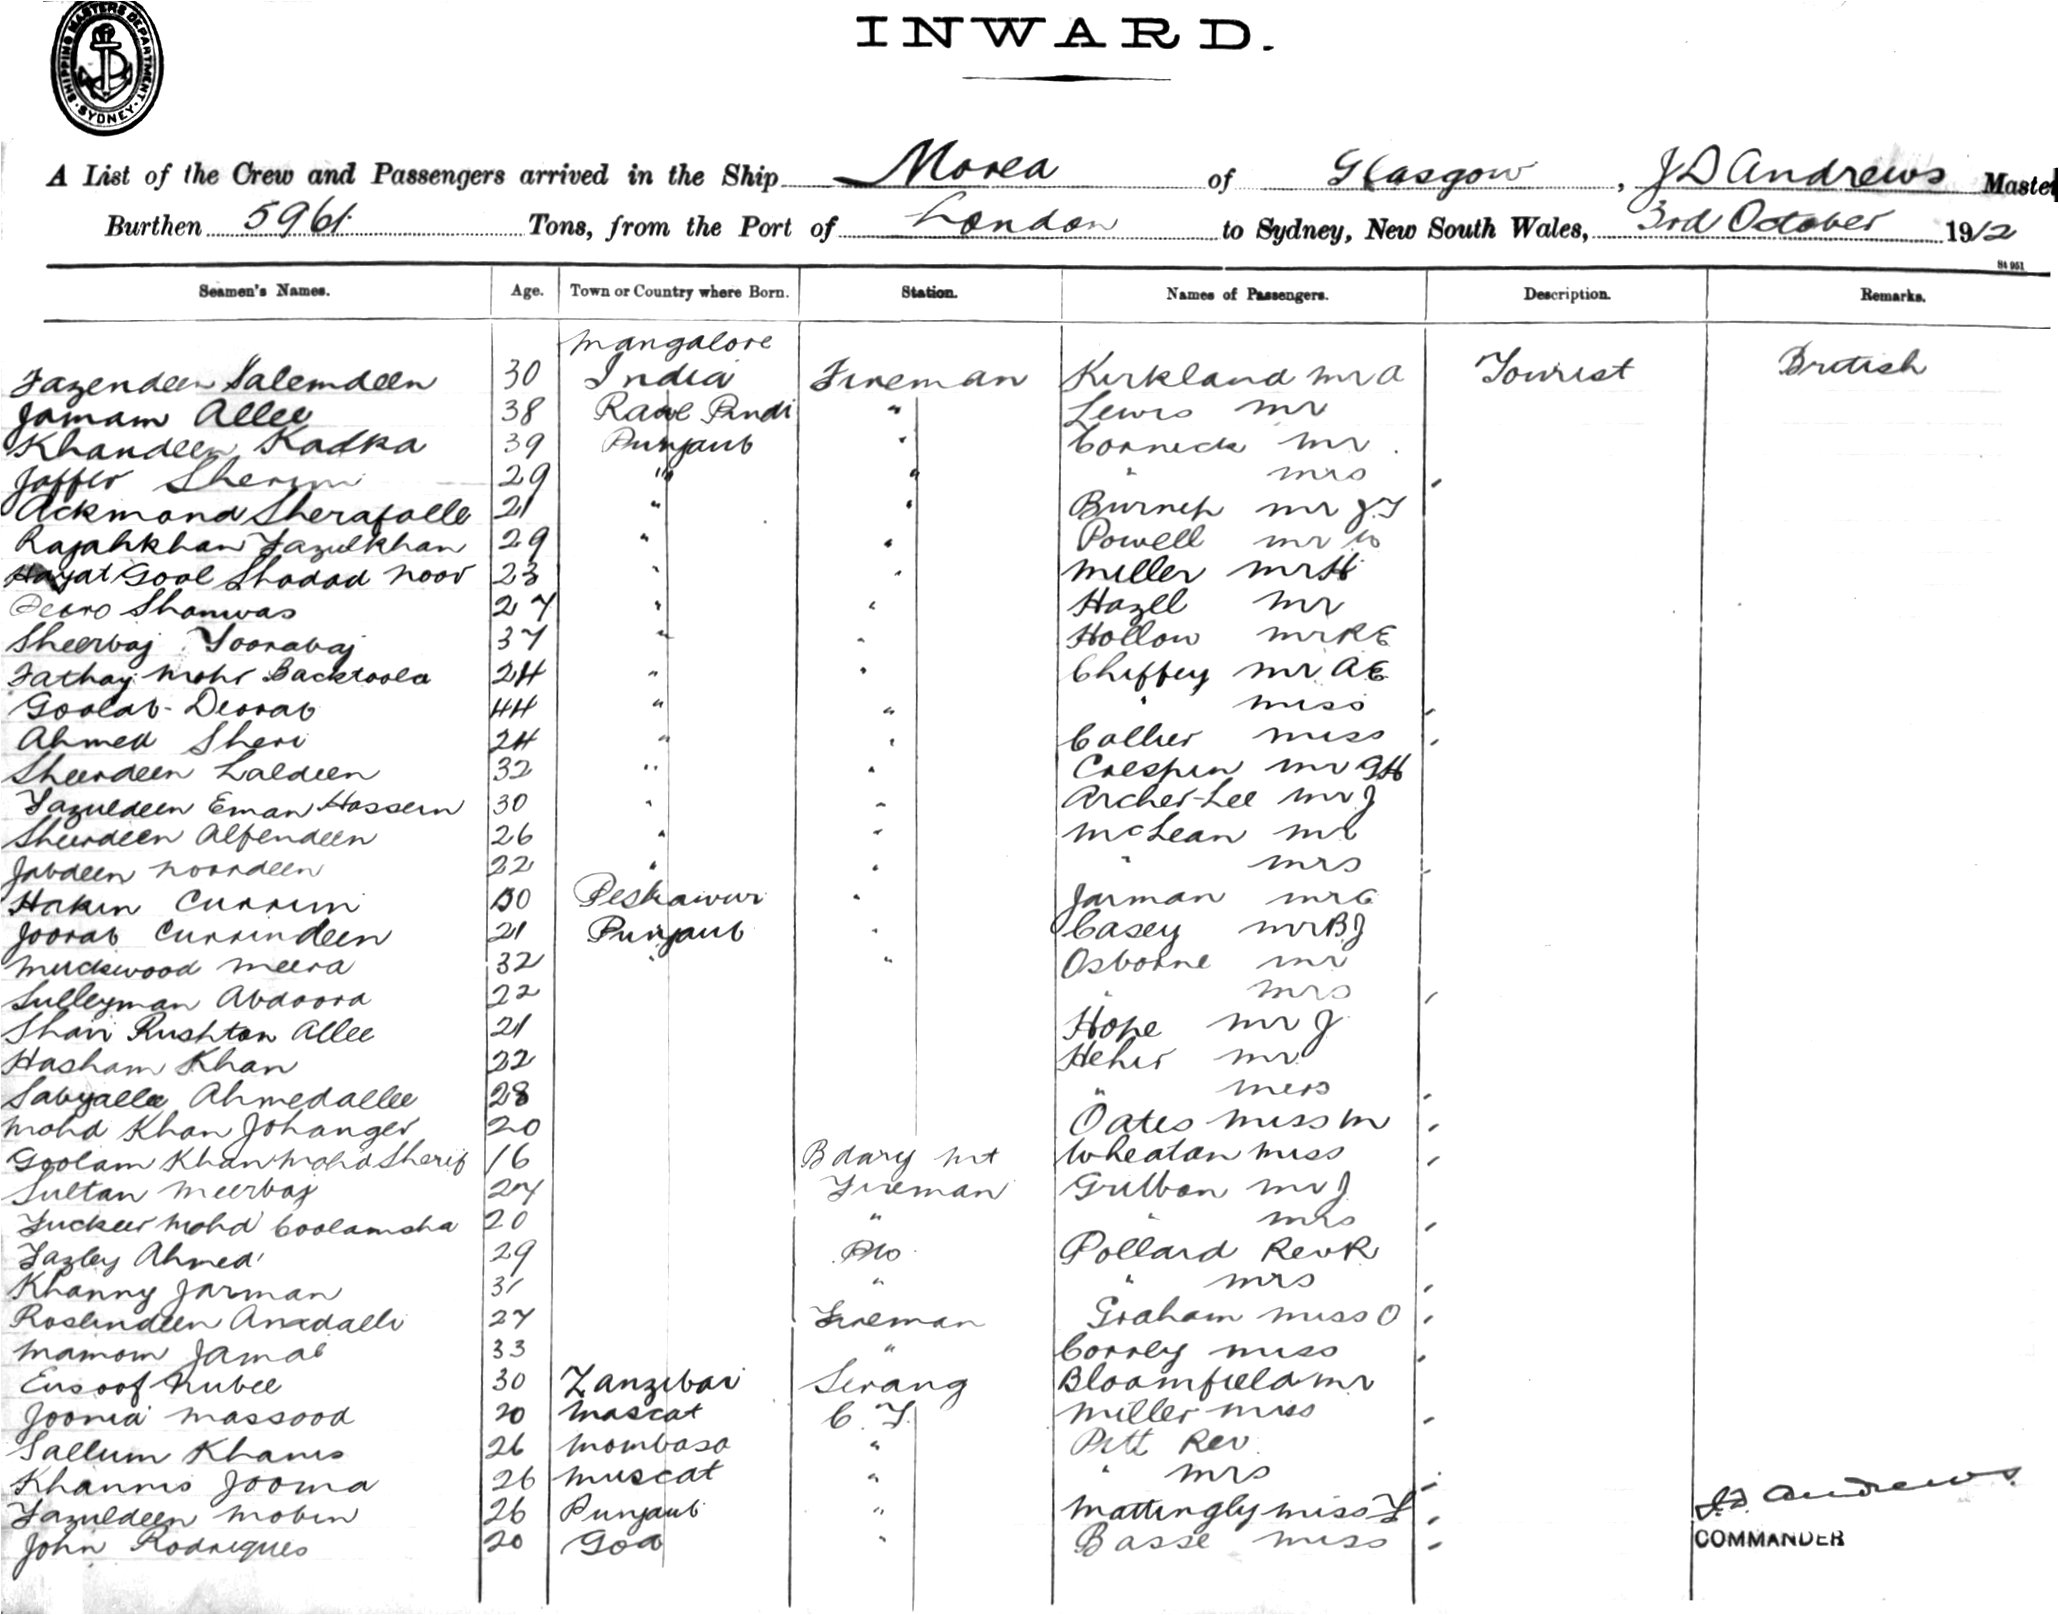 SHIPPING MASTERS DEPARTMENT. SYDNEY
INWARD.
A List of the Crew and Passengers arrived in the Ship Morea of Glasgow, J D Andrews Master
Burthen 5961 Tons, from the Port of London to Sydney, New South Wales, 3rd October 1912
St 951
Seamen's Names. Age. Town or Country where Born. Station. Names of Passengers. Description. Remarks.
Mangalore
Fazendeen Salemdeen 30 India Fireman Kirkland Mr A Tourist British
Jamam Allee 38 Rawl Pindi " Lewis Mr
Khandeen Kadka 39 Punjaub " Cornick Mr
Jaffer 29 " " " Mrs "
Ackmond Sherafalle 21 " " Mr J.T
Rajahkhan Fazulkhan 29 " " Powell Mr W
Hayat Gool Shadad Noor 23 " " Miller Mr H
Shamwas 27 " " Hazell Mr
Sheerbaj Toorabaj 37 " " Hollow Mr R E
Fathay Mohr Backtoola 24 " " Chiffey Mr A E
Goolab Deorab 44 " " " Miss "
Ahmed Sheri 24 " " Collier Miss "
Sheerdeen Laldeen 32 " " Crespin Mr G H
Fazuldeen Eman Hassein 30 " " Archer-Lee Mr J
Sheerdeen Alfendeen 26 " " McLean Mr
Jabdeen Noordeen 22 " " " Mrs "
Hakin Currim 30 Peshawur " Jarman Mr C
Joorab Currindeen 21 Punjaub " Casey Mr B J
Muckwood Meera 32 " " Osborne Mr
Sulleyman Abdoora 22 " Mrs "
Shair Rushton Allee 21 Hope Mr J
Hasham Khan 22 Heher Mr
Sabyalla Ahmedallee 28 " "
Mohd Khan Johanger 20 Oates Miss M "
Goolam Khan Mohd Sherif 16 Bdary Mt Wheatan Miss "
Sultan Meerbaj 27 Fireman Gribbon Mr J
Fuckeer Mohd Coolamsha 20 " " Mrs "
Fazley Ahmed 29 Pollard Rev R
Khanny Jarman 31 " " Mrs "
Roslindeen 27 Fireman Graham Miss O "
Mamom Jamal 33 " Correy Miss "
Eusoof Nubee 30 Zanzibar Serang Bloomfield Mr
Jooma Massood 20 Mascat C. T. Miller Miss "
Sallum Khamis 26 Mombasa " Pitt Rev.
Khamis Jooma 26 Muscat " " Mrs "
Fazuldeen Mobin 26 Punjaub " Mattingly Miss L "
John Rodrigues 20 Goa " Basse Miss "
J.D. Andrews.
COMMANDER